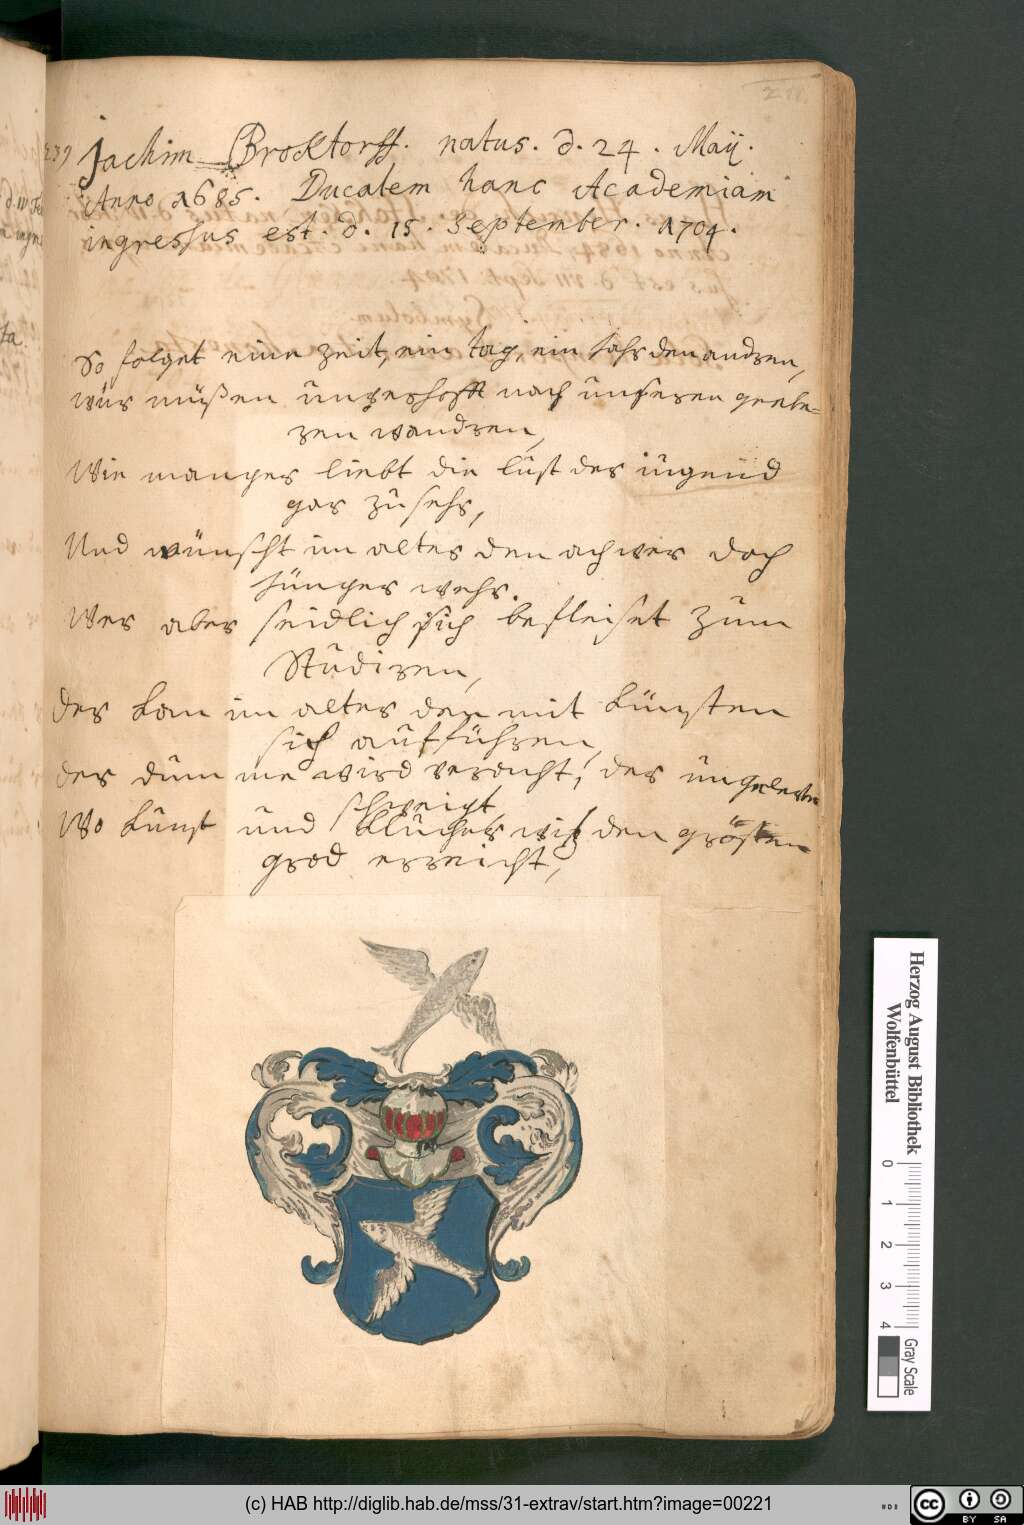 211
239 Jachim Brocktorff. natus. d. 24. Maij.
Anno 1685. Ducalem hanc Academiam
ingressus est. d. 15. September. 1704.
So folget eine Zeit, ein tag, ein Jahr den andren,
wür müßen unverhofft nach unseren
wandren,
Wie mancher liebt die lust der iugend
gar zu sehr,
Und wünscht im alter den ach wer doch
jünger wehr.
Wer aber sich befleiset zum
Studiren,
der kan im alter den mit künsten
sich aufführen,
der dumme wird veracht, der ungelerte
schweigt
Wo kunst und kluger witz den grösten
grad erreicht,
Herzog August Bibliothek
Wolfenbüttel
0 1 2 3 4
Gray Scale
(c) HAB http://diglib.hab.de/mss/31-extrav/start.htm?image=00221
cc BY SA